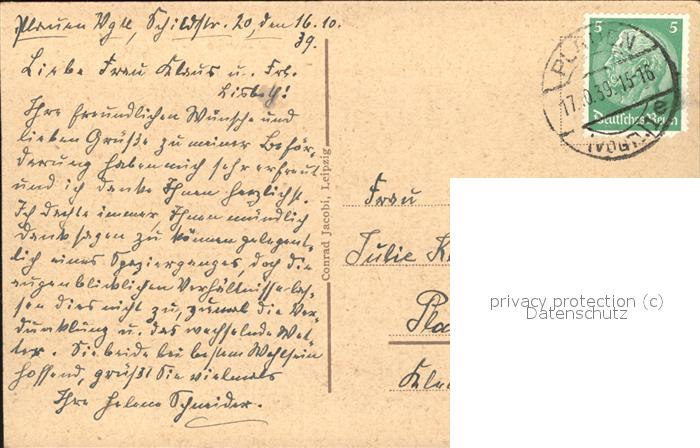 Plauen Vgtl, Schildstr. 20, den 16.10.
39.
Liebe Frau Klaus u. Frl.
Lisbeth!
Ihre freundlichen Wünsche und
lieben Grüße zu meiner Beför-
derung haben mich sehr erfreut
und ich danke Ihnen herzlichst.
Ich dachte immer, Ihnen mündlich
Dank sagen zu können gelegent-
lich eines Spazierganges, doch die
augenblicklichen Verhältnisse las-
sen dies nicht zu, zumal die Ver-
dunklung u. das wechselnde Wet-
ter. Sie beide bei bestem Wohlsein
hoffend, grüßt Sie vielmals
Ihre Helene Schneider.
Conrad Jacobi, Leipzig
5 5
Deutsches Reich
17.10.39.15-16
Frau
Julie
privacy protection (c)
Datenschutz